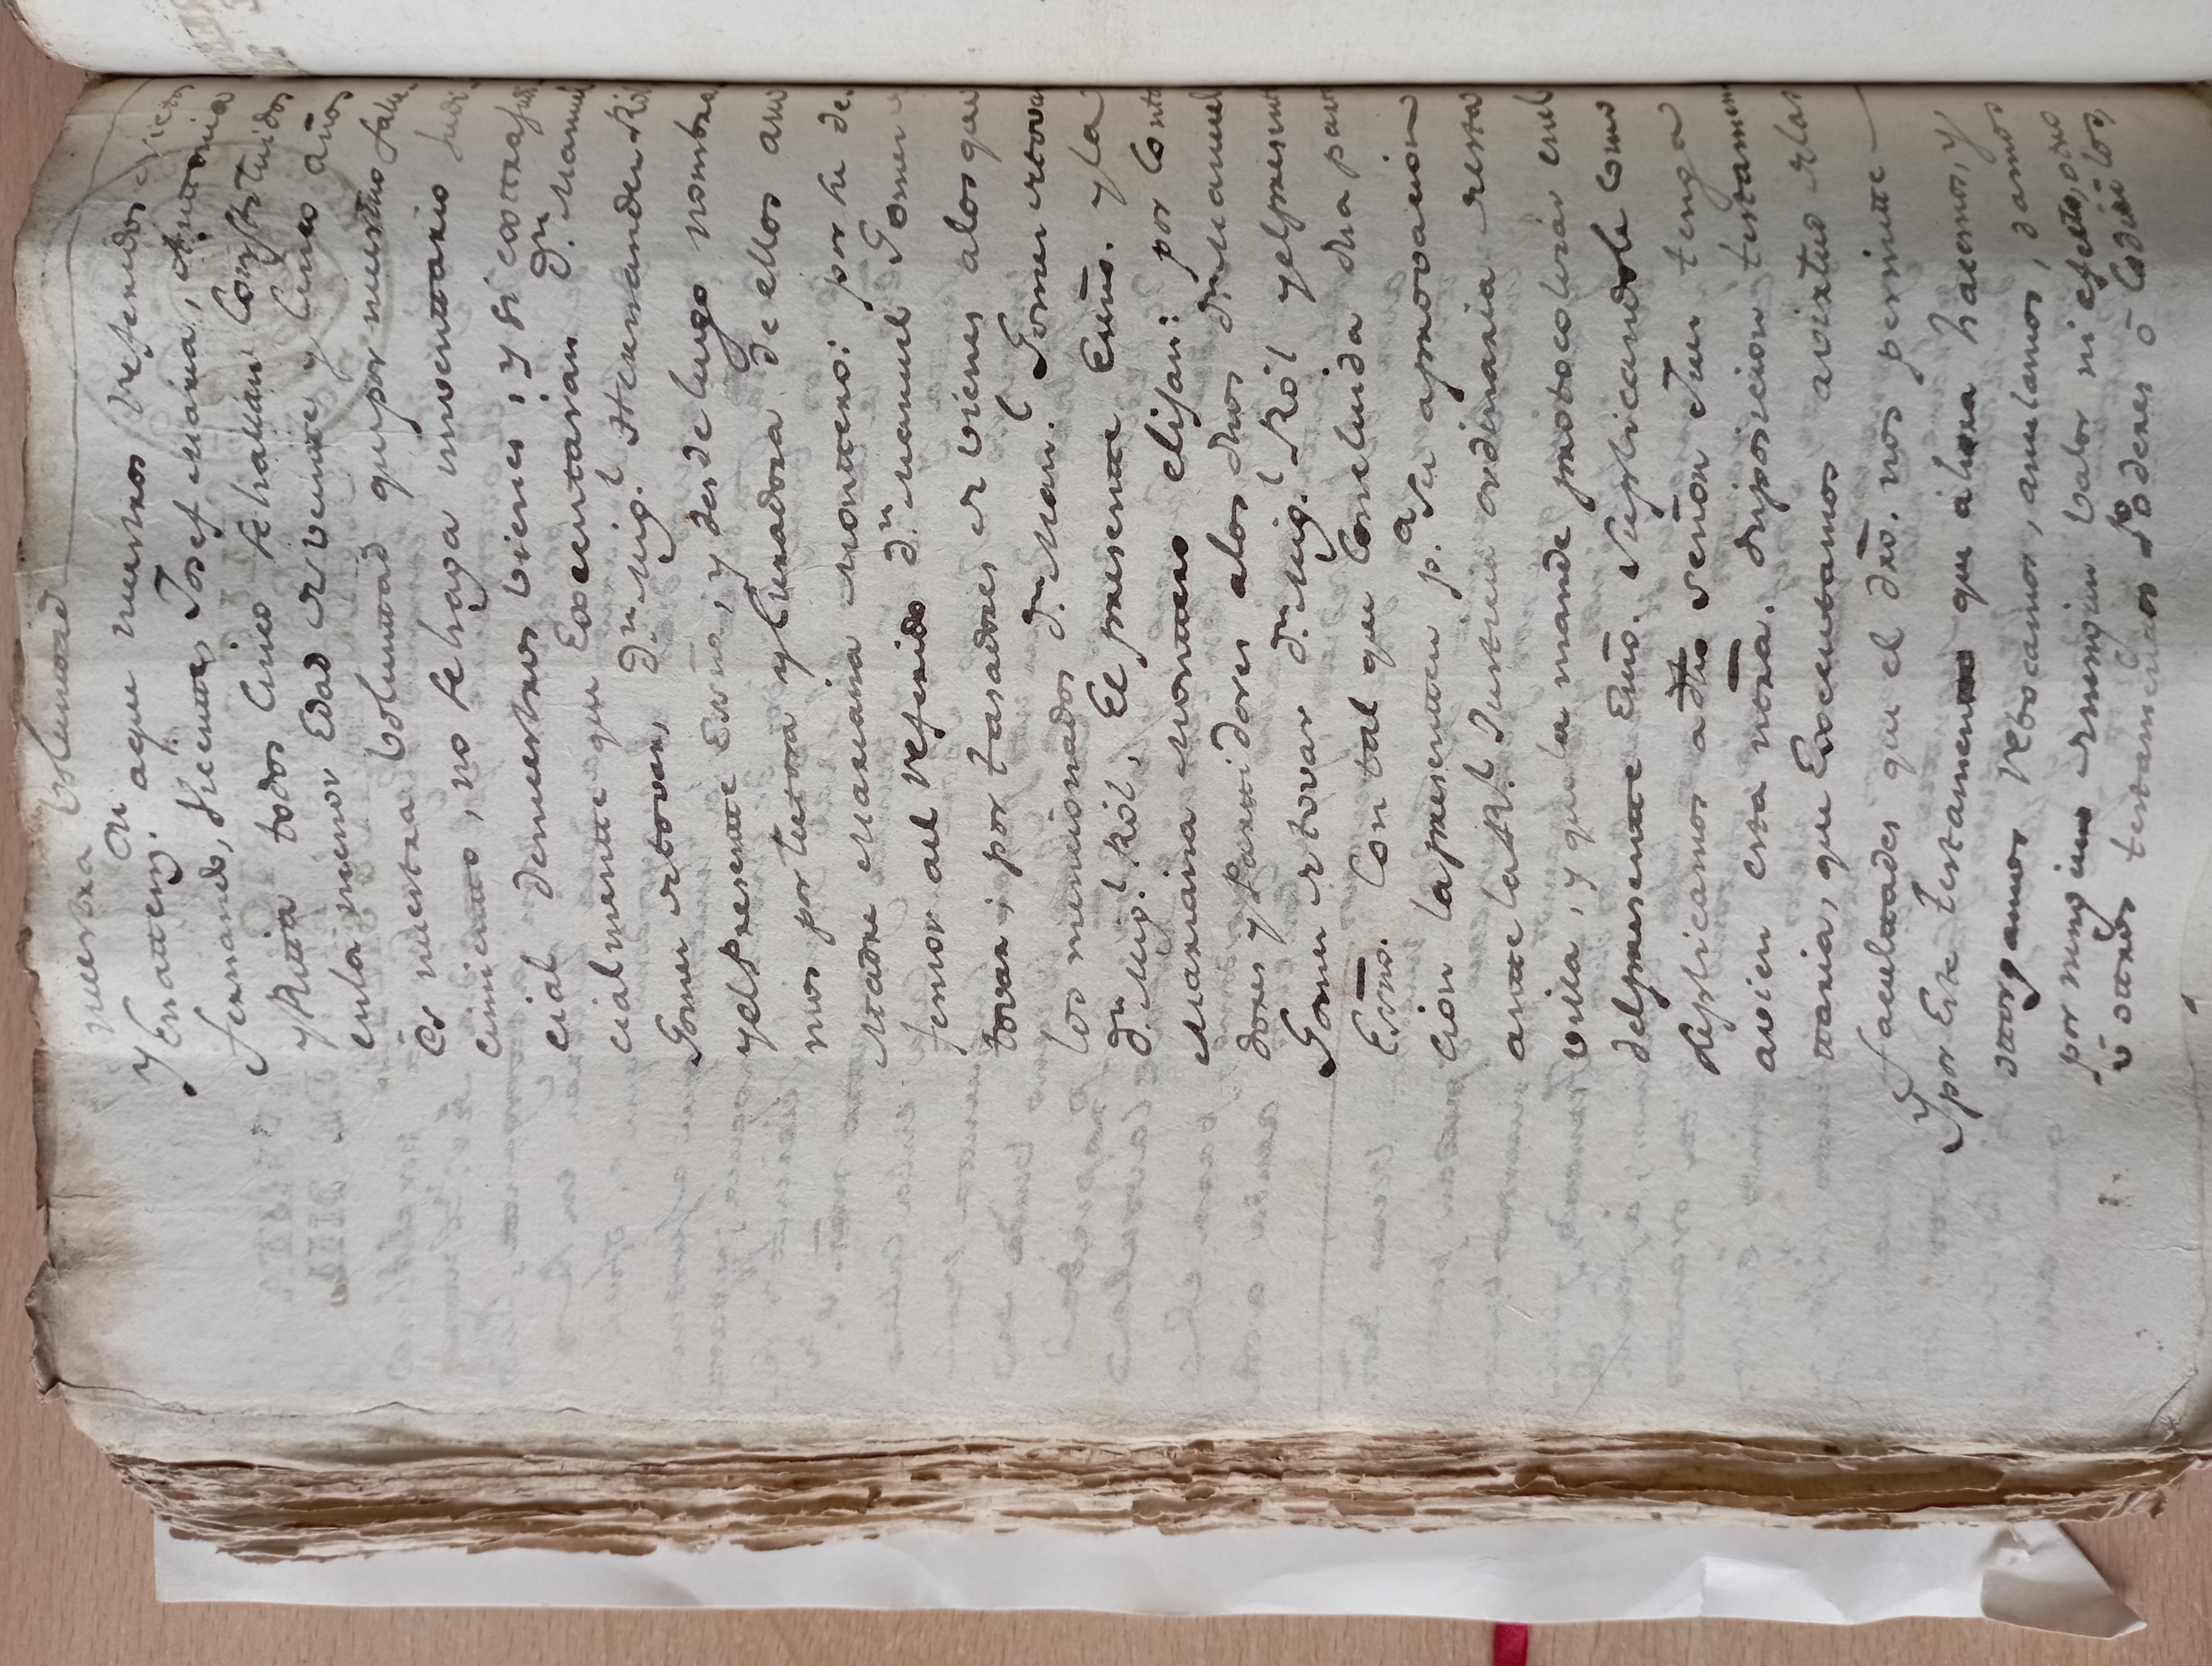 nuestra Voluntad
Y En atten.on aque nuestros referidos nietos
fernando, Vicentte, Josef Maria, Anttonia
y Ritta todos Cinco se hallan Constituidos
enla menor Edad de veintte y Cinco años
es nuestra Voluntad que por nuestro falle-
cimientto, no se haga inventtario Judi-
cial denuestros vienes, y si exttrajudi
cialmentte que Executaran d.n Manuel
Gomez de tovar, d.n Mig.l Hernandez Ról
y el Presentte Essño; y desde luego nombra
mos por tutora y Curadora de ellos a su
Madre Mariana Monttero: por su de-
fensor ael referido d.n Manuel Gomez de
tovar; por tasadores de vienes alos que
los mencionados d.n Man.l Gomez de tova
d.n Mig.l Ról, El presentte Essño. y la
Mariana Monttero elijan: por Conta
dores y Parttidores alos dhos d.n Manuel
Gomez de tovar d.n Mig.l Ról y el present
Essño. Con tal que Concluida dha parti
cion la presentten p.a Su aprovacion
antte la R.l Justicia ordinaria de esta
villa, y que la mande protocolizar enel
del presentte Essño. Suplicandole Como
suplicamos a dho señor Juez tenga
avien esta ntra. disposicion testamen
ttaria, que Executamos avirtud de las
facultades que el dro. nos permitte
Y por Este testamentto que ahora hacemos, y
ottorgamos revocamos, anulamos, damos
por ninguno de ningun Valor ni efecto, otro
ú ottros testamenttos Poderes ó Codicilos,